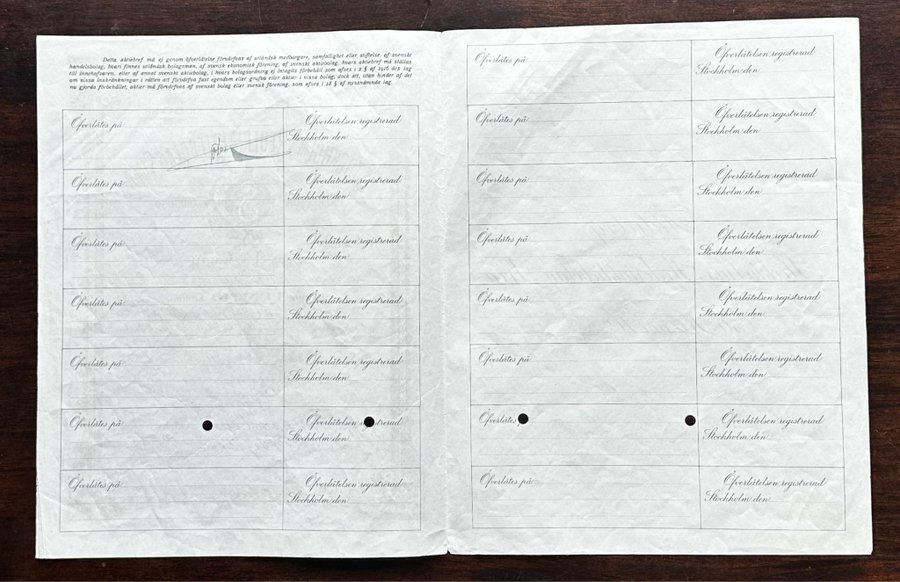 Detta aktiebref må ej genom öfverlåtelse förvärfvas af utländsk medborgare, samfällighet eller stiftelse, af svenskt
handelsbolag, hvari finnes utländsk bolagsman, af svensk ekonomisk förening, af svenskt aktiebolag, hvars aktiebref må ställas
till innehafvaren, eller af annat svenskt aktiebolag, i hvars bolagsordning ej intagits förbehåll som afses i 2 § af 1916 års lag
om vissa inskränkningar i rätten att förvärfva fast egendom eller grufva eller aktier i vissa bolag; dock att, utan hinder af det
nu gjorda förbehållet, aktier må förvärfvas af svenskt bolag eller svensk förening, som afses i 18 § af nyssnämnda lag.
Öfverlåtes på:
Öfverlåtelsen registrerad
Stockholm den
Öfverlåtes på:
Öfverlåtelsen registrerad
Stockholm den
Öfverlåtes på:
Öfverlåtelsen registrerad
Stockholm den
Öfverlåtes på:
Öfverlåtelsen registrerad
Stockholm den
Öfverlåtes på:
Öfverlåtelsen registrerad
Stockholm den
Öfverlåtes på:
Öfverlåtelsen registrerad
Stockholm den
Öfverlåtes på:
Öfverlåtelsen registrerad
Stockholm den
Öfverlåtes på:
Öfverlåtelsen registrerad
Stockholm den
Öfverlåtes på:
Öfverlåtelsen registrerad
Stockholm den
Öfverlåtes på:
Öfverlåtelsen registrerad
Stockholm den
Öfverlåtes på:
Öfverlåtelsen registrerad
Stockholm den
Öfverlåtes på:
Öfverlåtelsen registrerad
Stockholm den
Öfverlåtes på:
Öfverlåtelsen registrerad
Stockholm den
Öfverlåtes
Öfverlåtelsen registrerad
Stockholm den
Öfverlåtes på:
Öfverlåtelsen registrerad
Stockholm den